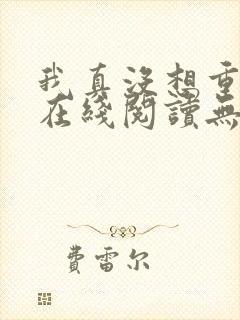 我真没想重
在綫閱讀無
費雷尔